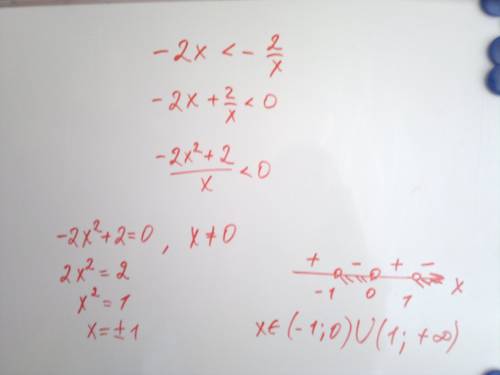 -2x < - 2/x
-2x + 2/x < 0
(-2x² + 2)/x < 0
-2x² + 2 = 0, x ≠ 0
2x² = 2
x² = 1
x = ± 1
+ - + -
-1 0 1 x
x ∈ (-1; 0) ∪ (1; +∞)